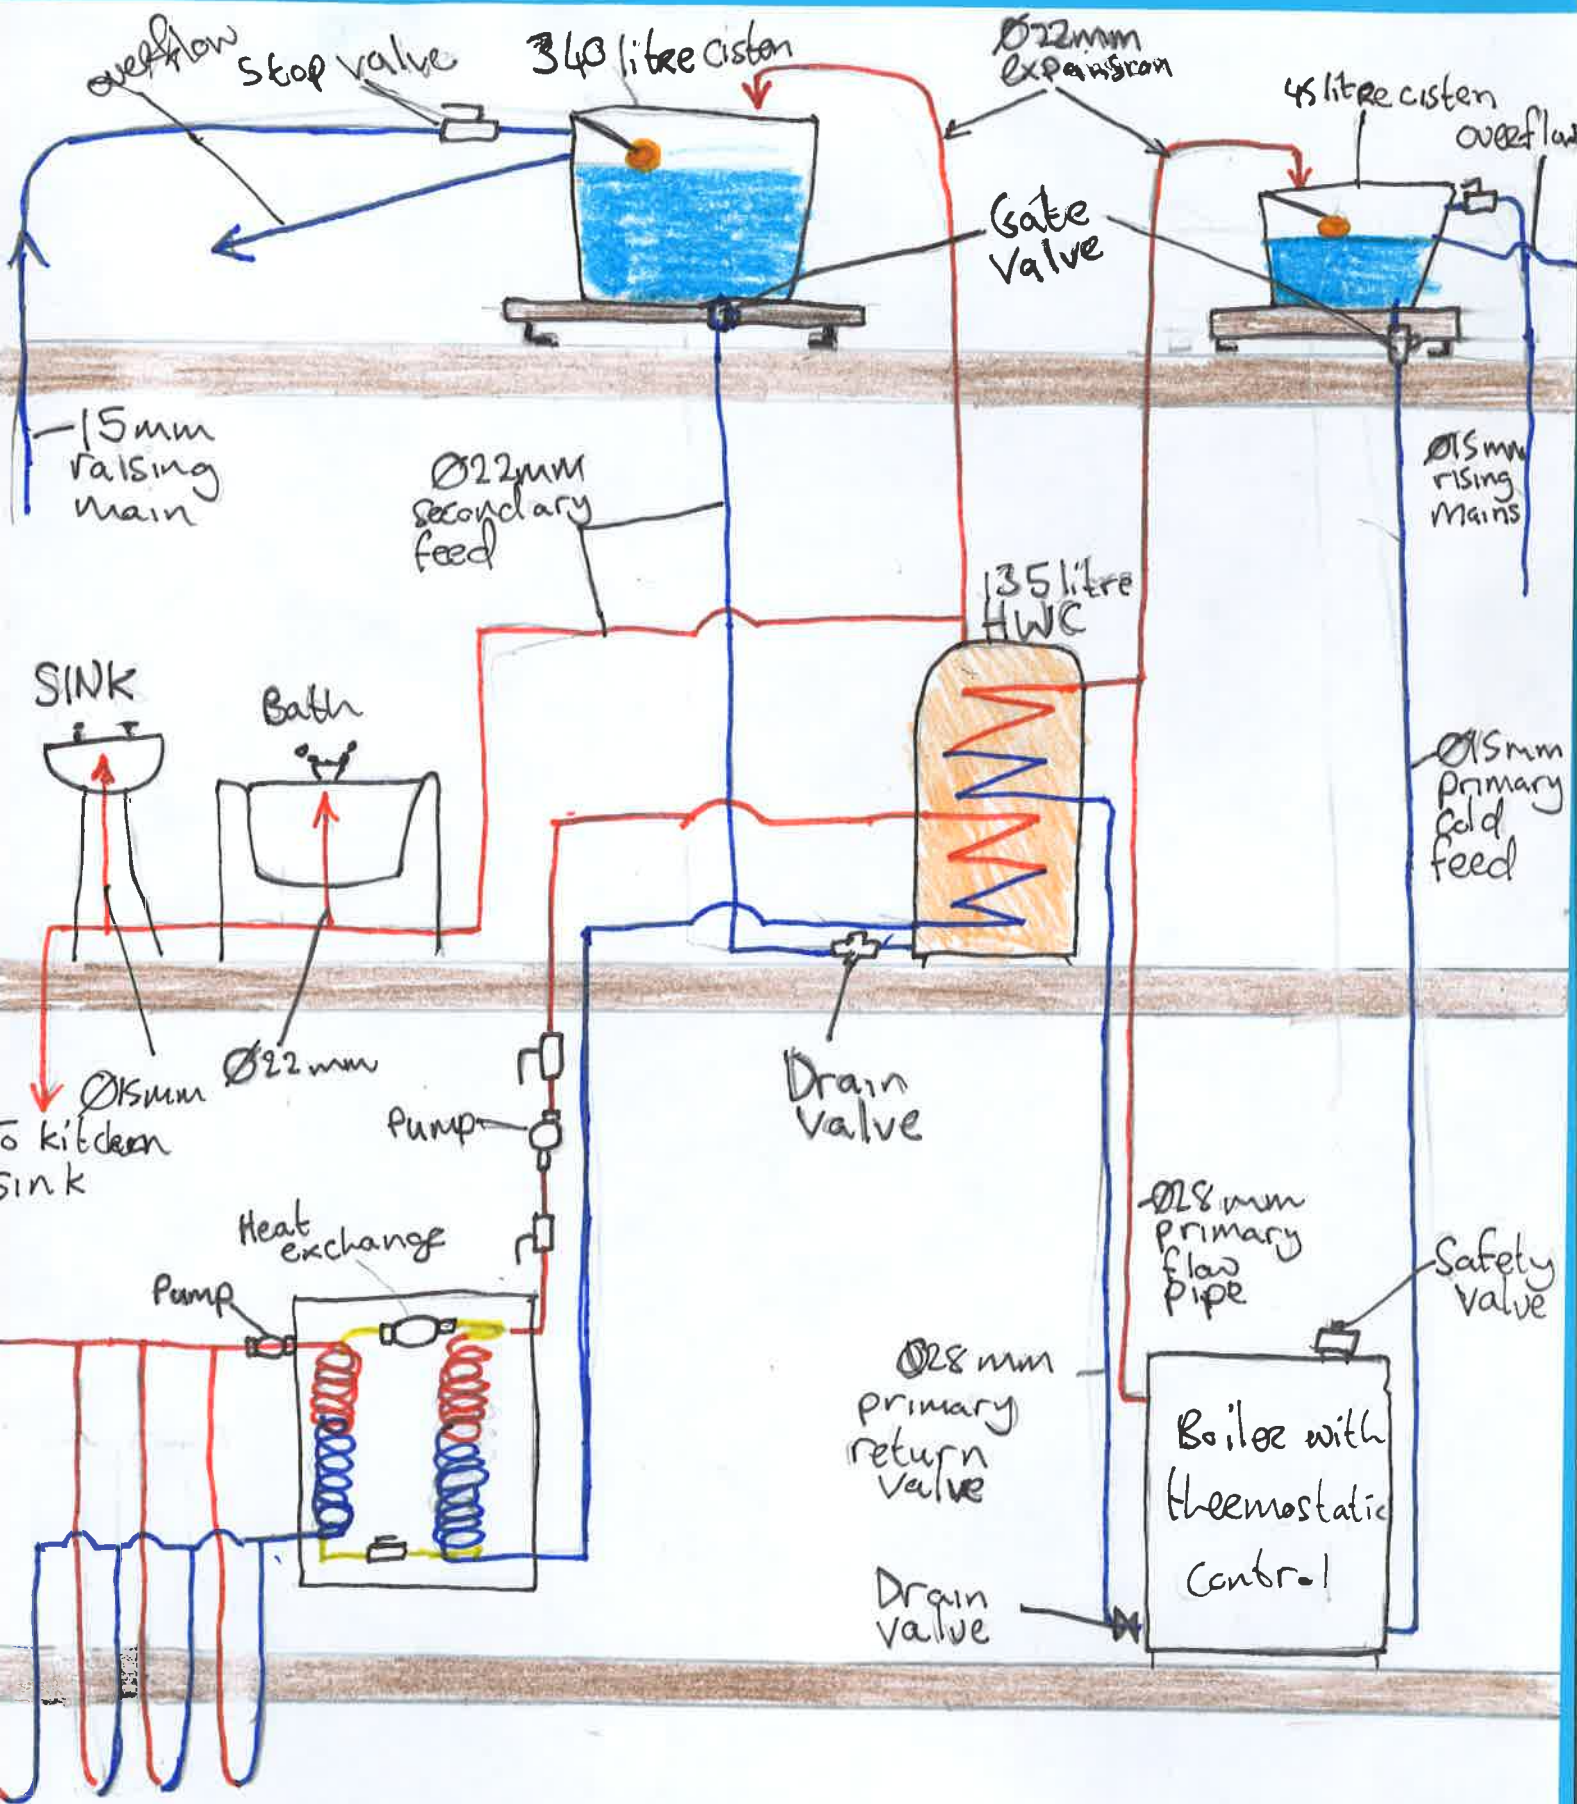 overflow
Stop valve
340 litre cisten
Ø22mm
expansion
45 litre cisten
overflow
Gate
Valve
15mm
raising
main
Ø22mm
secondary
feed
Ø15mm
rising
Mains
135 litre
HWC
SINK
Bath
Ø15mm
primary
Cold
feed
Ø15mm
Ø22mm
To kitchen
sink
Pump
Drain
Valve
Heat
exchange
Pump
Ø28 mm
primary
flow
pipe
Safety
Valve
Ø28 mm
primary
return
Valve
Boiler with
thermostatic
Control
Drain
valve